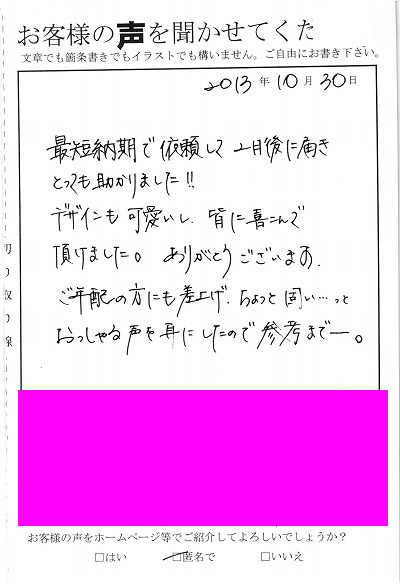 お客様の声を聞かせてくた
文章でも箇条書きでもイラストでも構いません。ご自由にお書き下さい。
2013年10月30日
最短納期で依頼して2日後に届き
とっても助かりました!!
デザインも可愛いし、皆に喜こんで
頂けました。ありがとうございます。
ご年配の方にも差上げ、ちょっと固い…っと
おっしゃる声を耳にしたので参考までー。
切り取り線
お客様の声をホームページ等でご紹介してよろしいでしょうか?
□はい □匿名で □いいえ